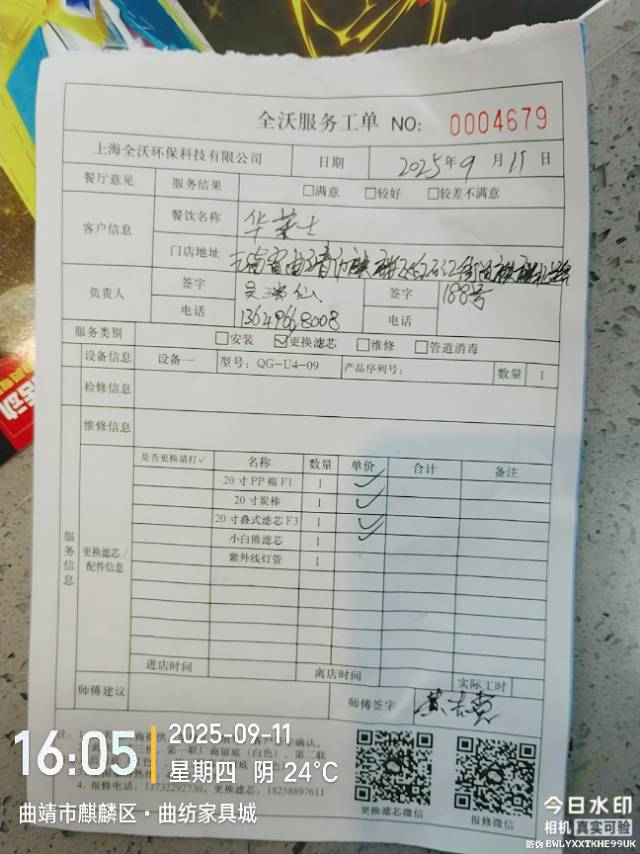 全沃服务工单 NO: 0004679
上海全沃环保科技有限公司 日期 2025年9月11日
餐厅意见 服务结果 □满意 □较好 □较差不满意
客户信息 餐饮名称 华莱士
门店地址 云南省曲靖市麒麟区白石江街道麒麟北路
188号
负责人 签字 吴瑞仙 签字
电话 13649668008 电话
服务类别 □安装 ☑更换滤芯 □维修 □管道消毒
设备信息 设备一 型号: QG-U4-09 产品序列号: 数量 1
检修信息
维修信息
服务信息
更换滤芯/配件信息
是否更换请打✓ 名称 数量 单价 合计 备注
20寸PP棉F1 1 ✓
20寸炭棒 1 ✓
20寸叠式滤芯F3 1 ✓
小白熊滤芯 1 ✓
紫外线灯管 1
进店时间 离店时间 实际工时
师傅建议 师傅签字
注: 1
4.报修电话: 13732292730、18258897611
更换滤芯微信 报修微信
16:05 2025-09-11
星期四 阴 24℃
曲靖市麒麟区·曲纺家具城
今日水印
相机 真实可验
防伪 BWLYXXTKHE99UK